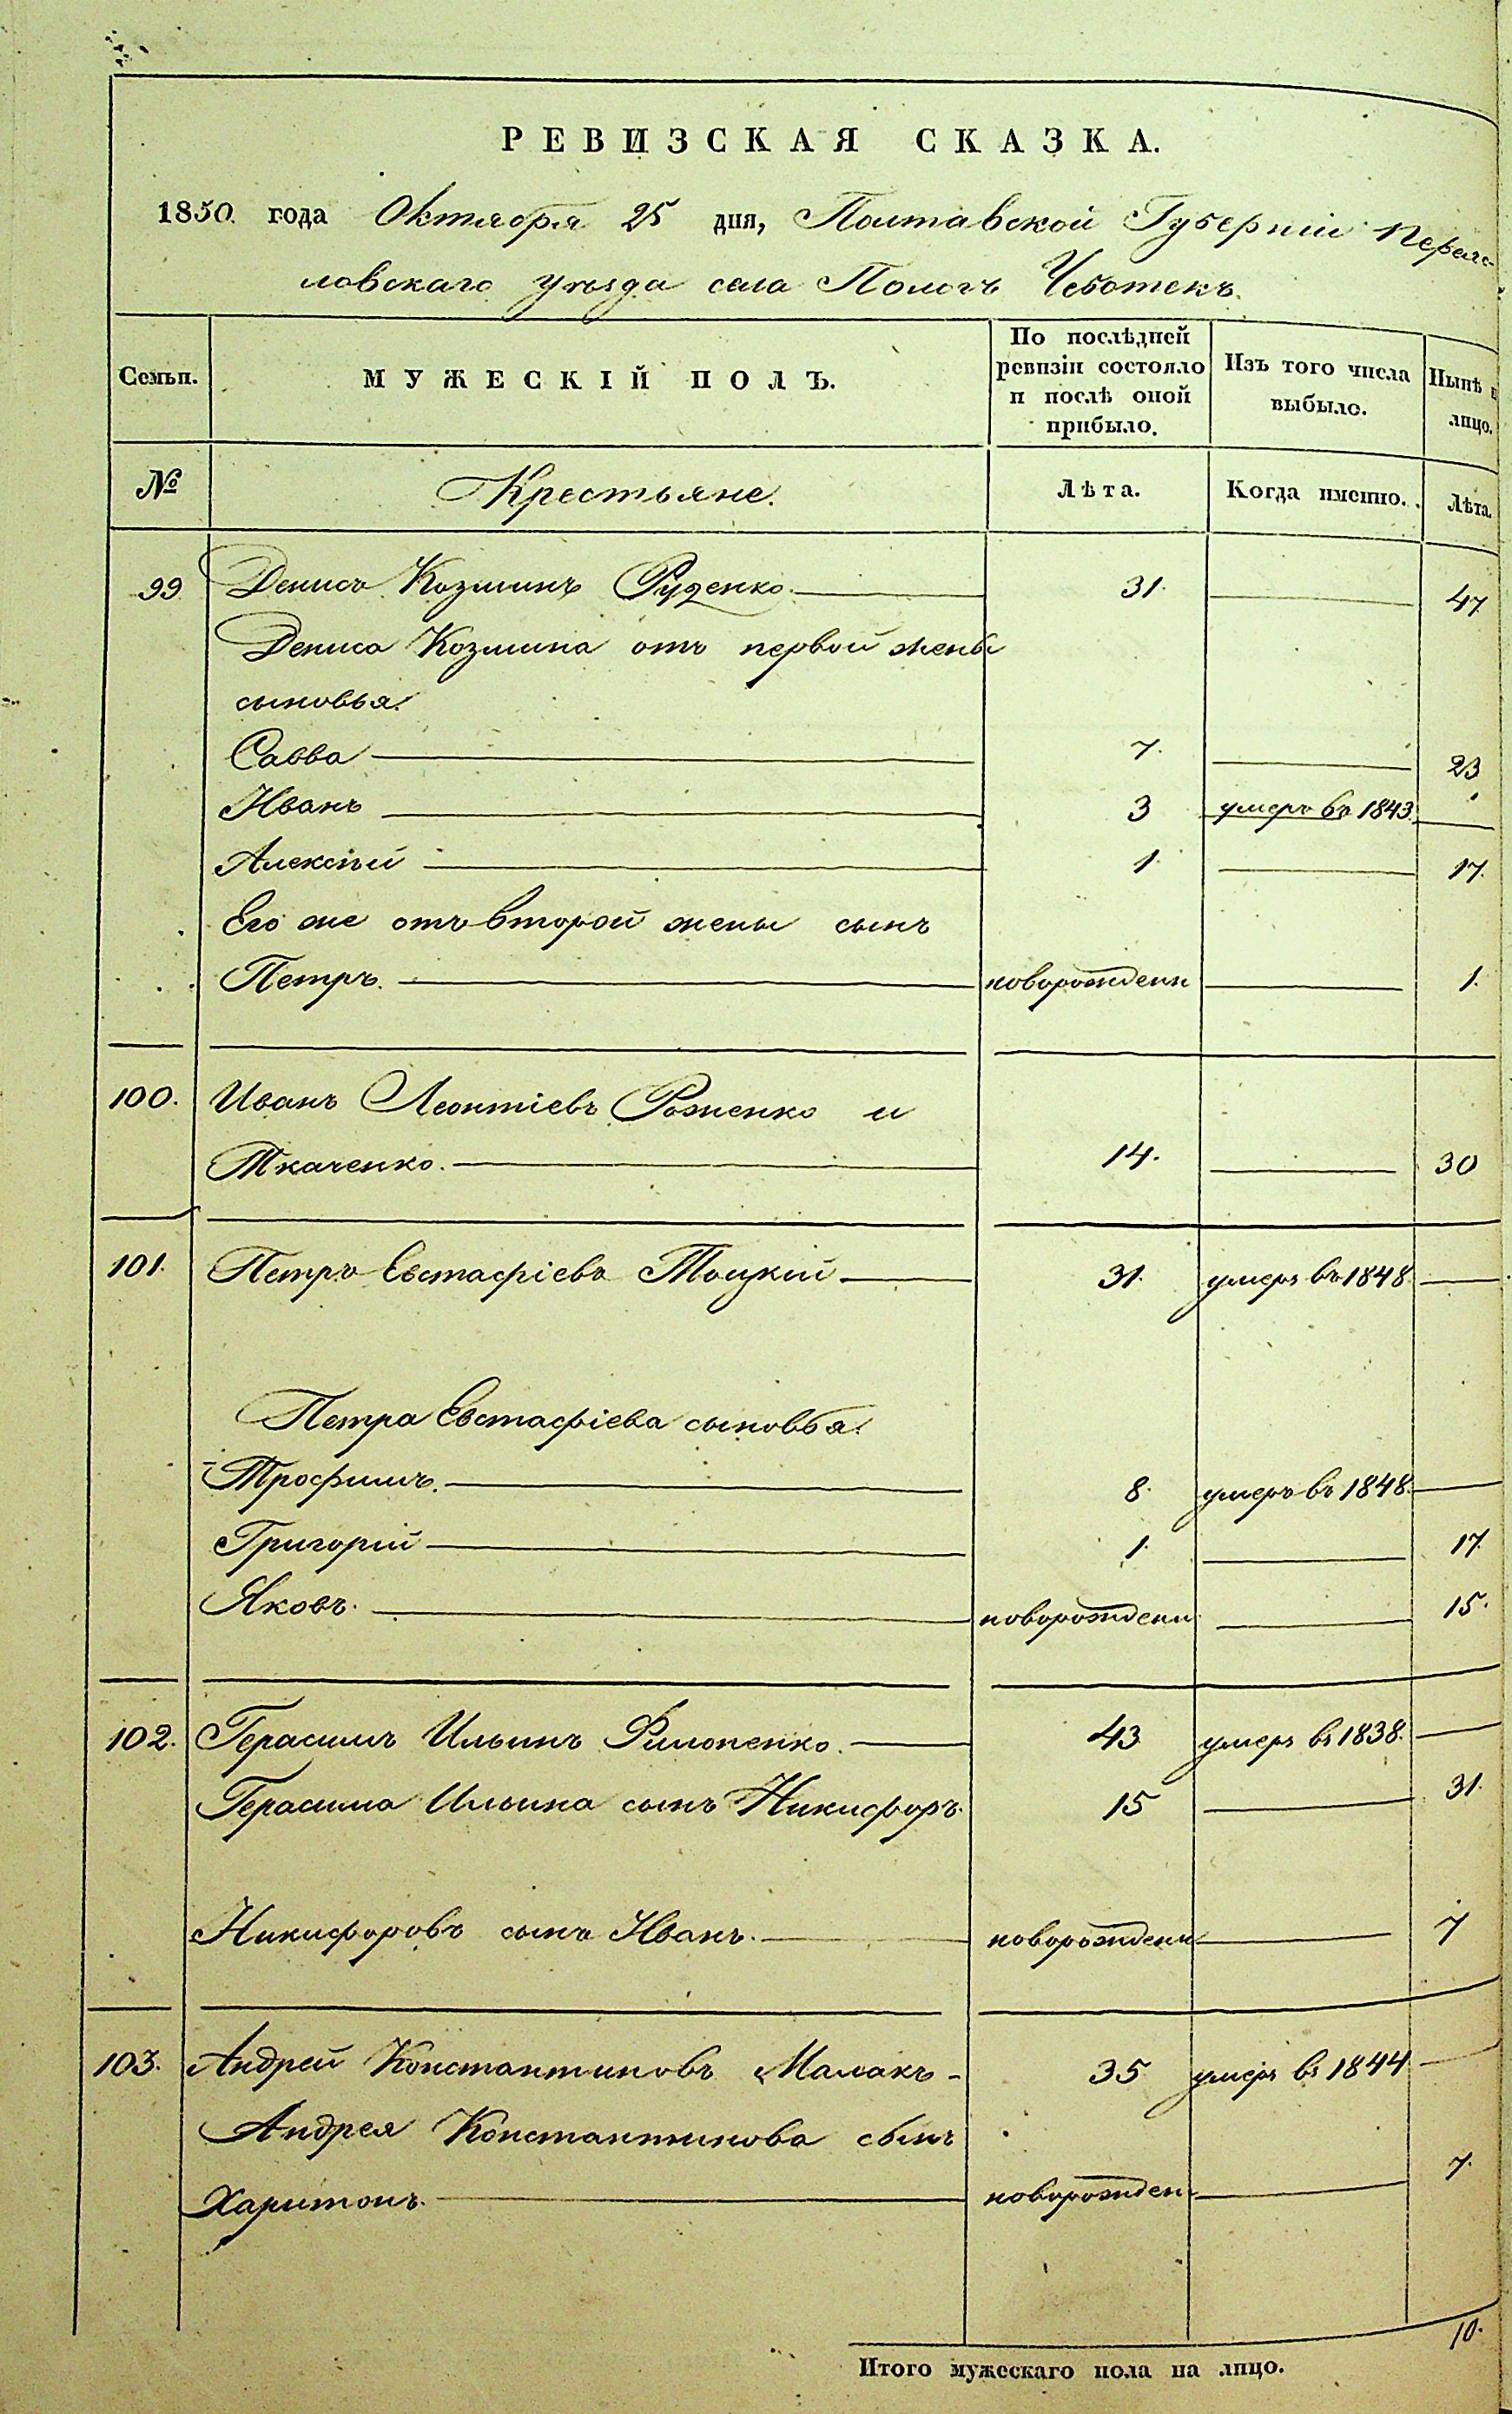 РЕВИЗСКАЯ СКАЗКА.
1850. года Октября 25 дня, Полтавской Губерніи Переяс-
ловскаго уѣзда села Пологъ Чеботекъ.
Семьи. МУЖЕСКІЙ ПОЛЪ. По послѣдней ревизіи состояло и послѣ оной прибыло. Изъ того числа выбыло. Нынѣ в лицо.
№ Крестьяне. Лѣта. Когда именно. Лѣта.
99 Денисъ Козминъ Руденко 31. 47
Дениса Козмина отъ первой жены
сыновья.
Савва 7. 23
Иванъ 3 умеръ въ 1843.
Алексѣй 1 17.
Его же отъ второй жены сынъ
Петръ. новорожденн 1.
100. Иванъ Леонтіевъ Роженко и
Ткаченко. 14. 30
101. Петръ Евстафіевъ Тоцкій 31. умеръ въ 1848.
Петра Евстафіева сыновья.
Трофимъ. 8. умеръ въ 1848.
Григорій 1. 17.
Яковъ. новорожденн 15.
102. Герасимъ Ильинъ Филоненко. 43 умеръ въ 1838.
Герасима Ильина сынъ Никифоръ. 15 31.
Никифоровъ сынъ Иванъ. новорожденн 7
103. Андрей Константиновъ Малакъ- 35 умеръ въ 1844
Андрея Константинова сынъ
Харитонъ. новорожден 7.
10.
Итого мужескаго пола на лицо.